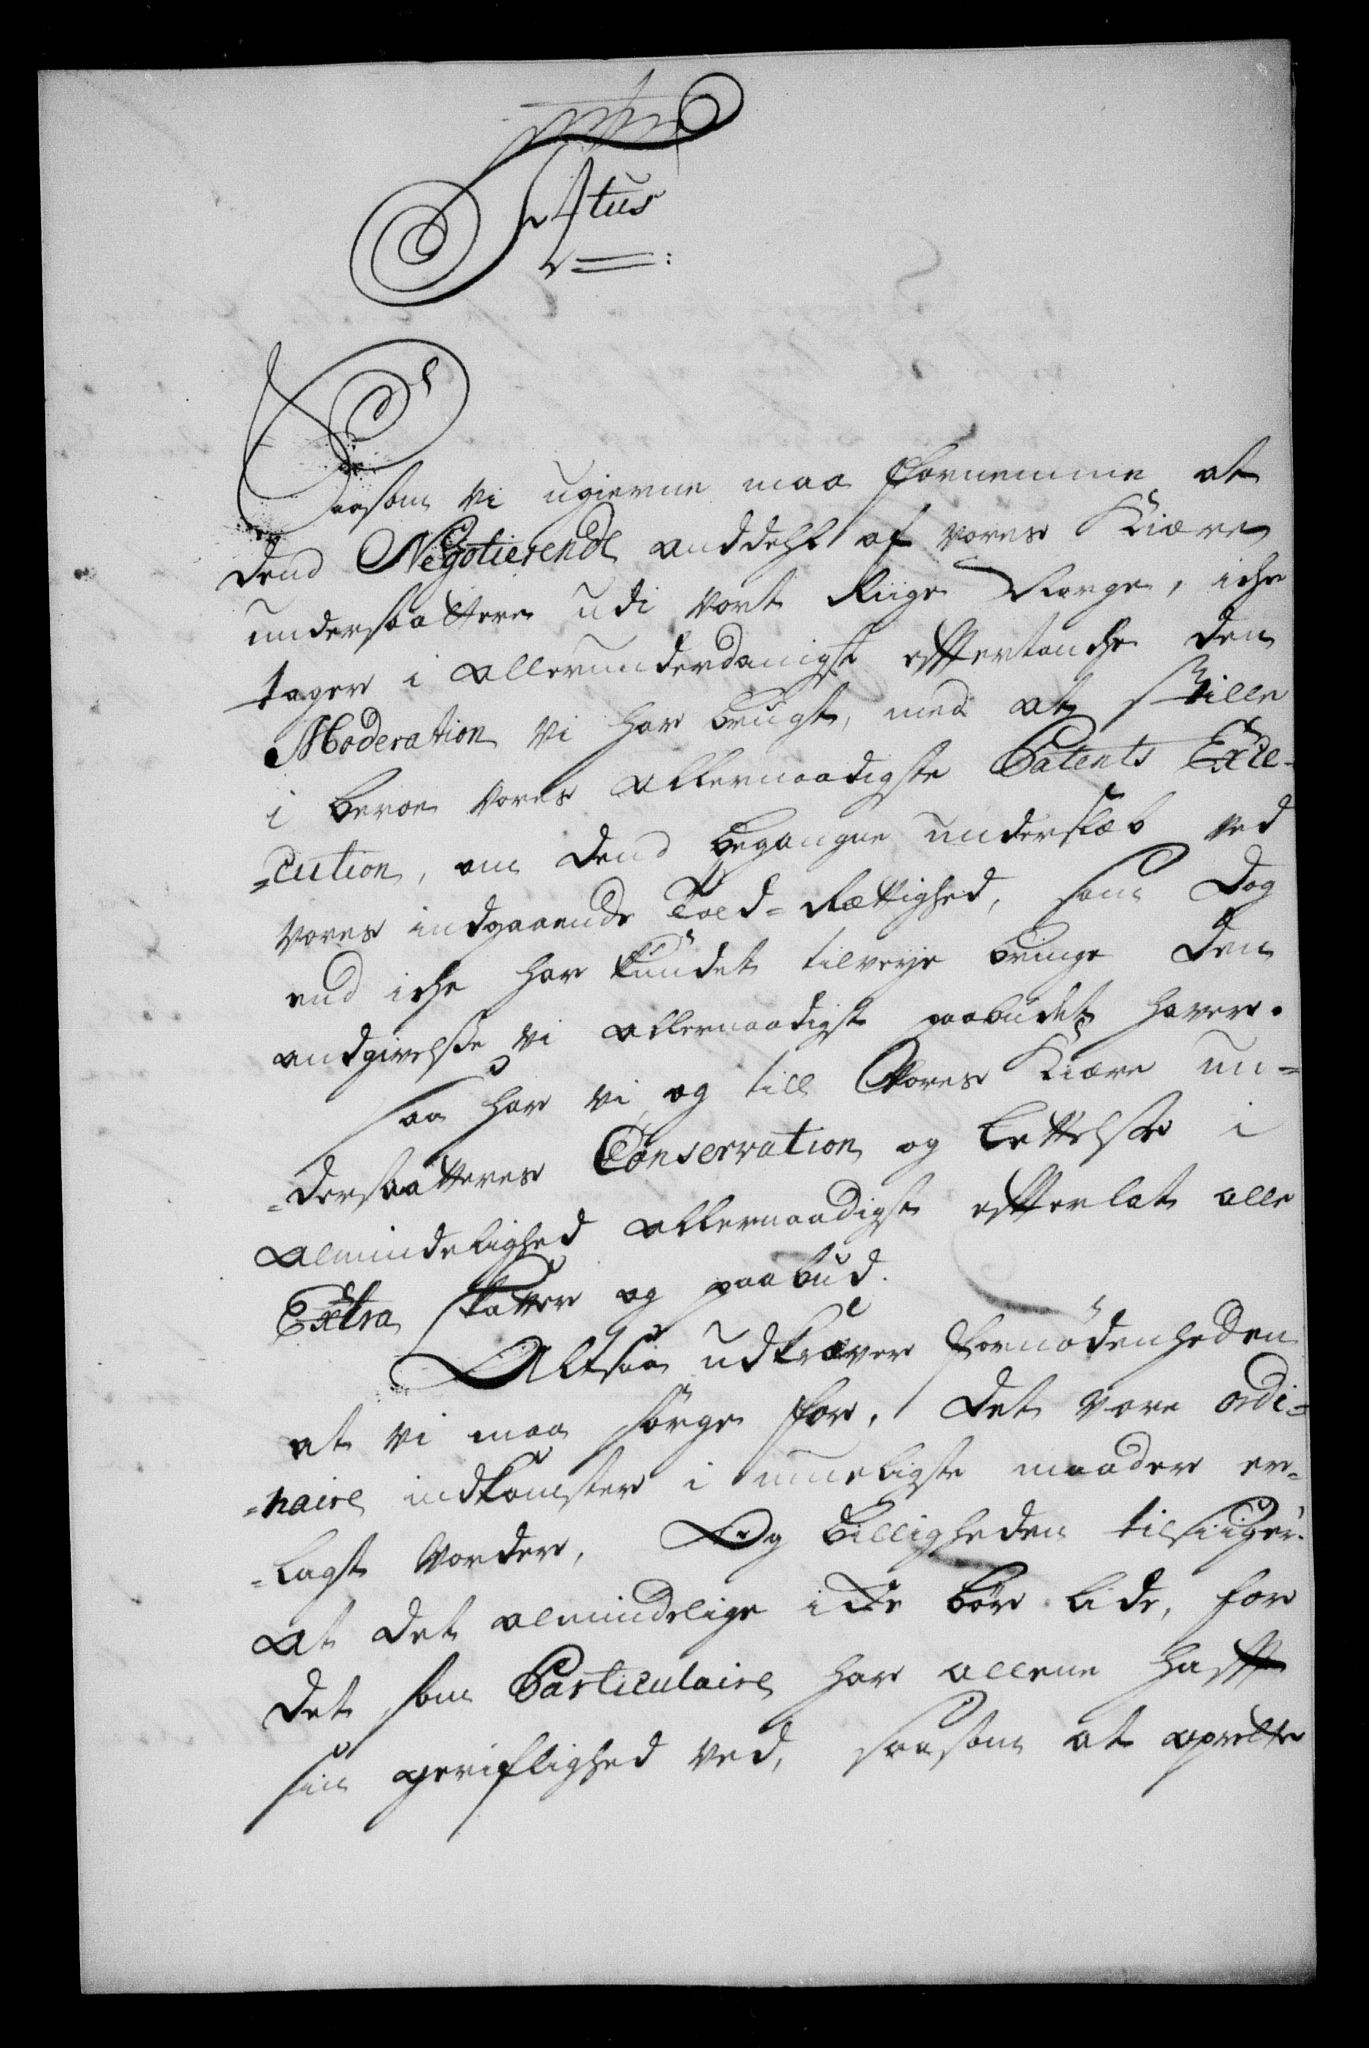 Saasom vi ugierne maa fornemme at
dend Negotierende anddehl af vores Kiære
undersaattere udi vort Riige Norge, iche
tager i allerunderdanigst efftertanche den
Moderation vi har brugt, med at stille
i beroe vores allernaadigste Patents Exe-
=cution, om dend begangne underslæb ved
vores indgaaende Told=Rettighed, som dog
end iche har kundet tilveye bringe den
andgivelse vi allernaadigst paabudet haver.
Saa har vi og till Vores Kiære un=
=dersaatteres Conservation og Lettelse i
almindelighed allernaadigst efterlat alle
Extra skatter og paabud.
Altsaa udkræver fornödenheden
at vi maa sörge for, det vore ordi=
=naire indkomster i mueligste maader er=
=lagt vorder, Og billigheden tilsiiger
at det almindelige icke bör lide, for
det som Particulaire har allene hafft
sin geriflighed ved, saasom at oprette